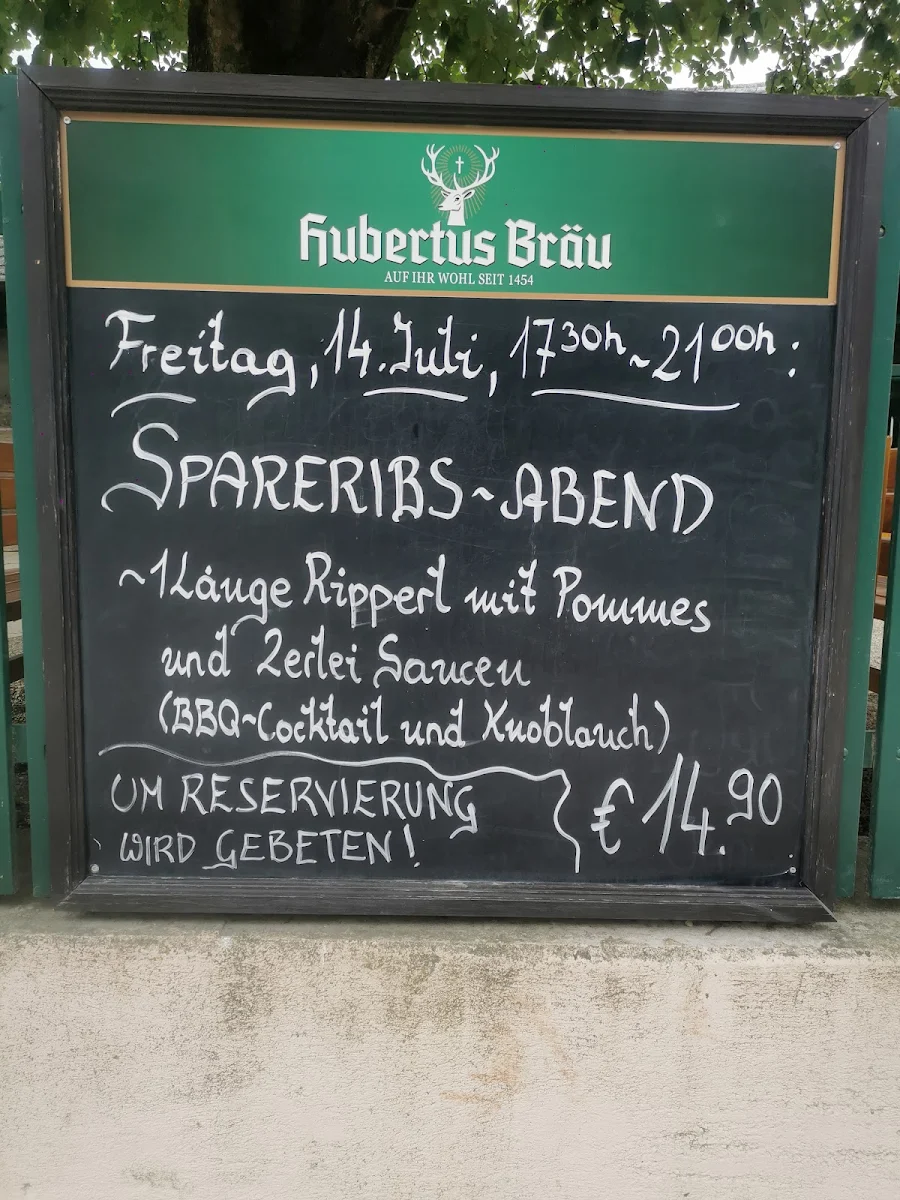 Hubertus Bräu
AUF IHR WOHL SEIT 1454
Freitag, 14. Juli, 17³⁰ʰ ~ 21⁰⁰ʰ :
SPARERIBS~ABEND
~1 Länge Ripperl mit Pommes
und 2erlei Saucen
(BBQ~Cocktail und Knoblauch)
UM RESERVIERUNG
WIRD GEBETEN!
€ 14.90